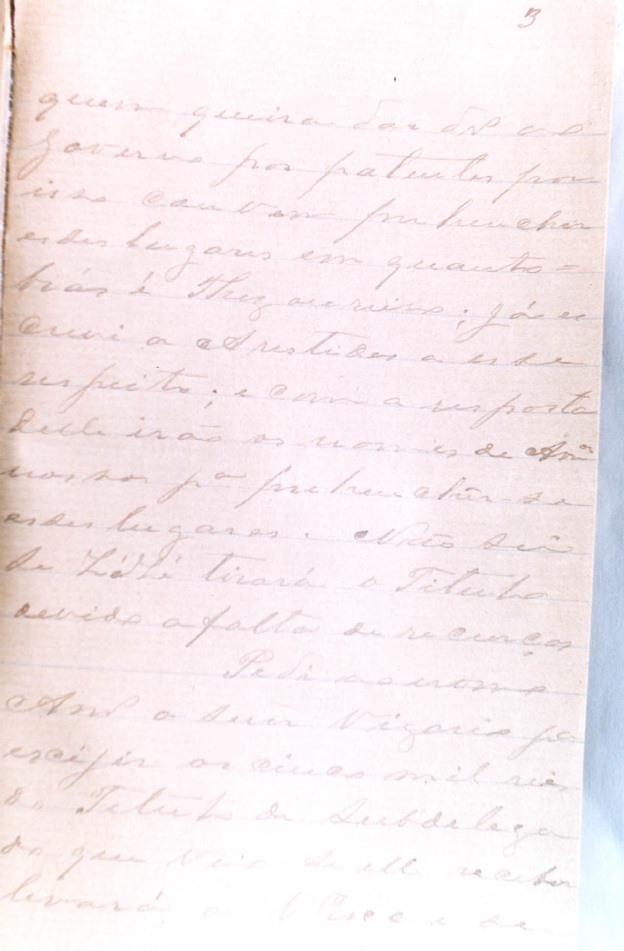 3
quem queira dar ao
Governo por patentes por
isso convem prehencher
esdes lugares em quanto =
é Thezoureiro; já es
crevi a Aristides a esse
respeito; e com a resposta
delle irão os nomes de Amos
nossos pa prehencher-se
esdes lugares. Não sei
se Zézé tirará o Titulo
devido a falta de recurços
Pedi ao
a seu Vigario pa
escijir os cinco mil reis
do Titulo de Subdelega
do que veio se elle receber
levará a Vmce e se